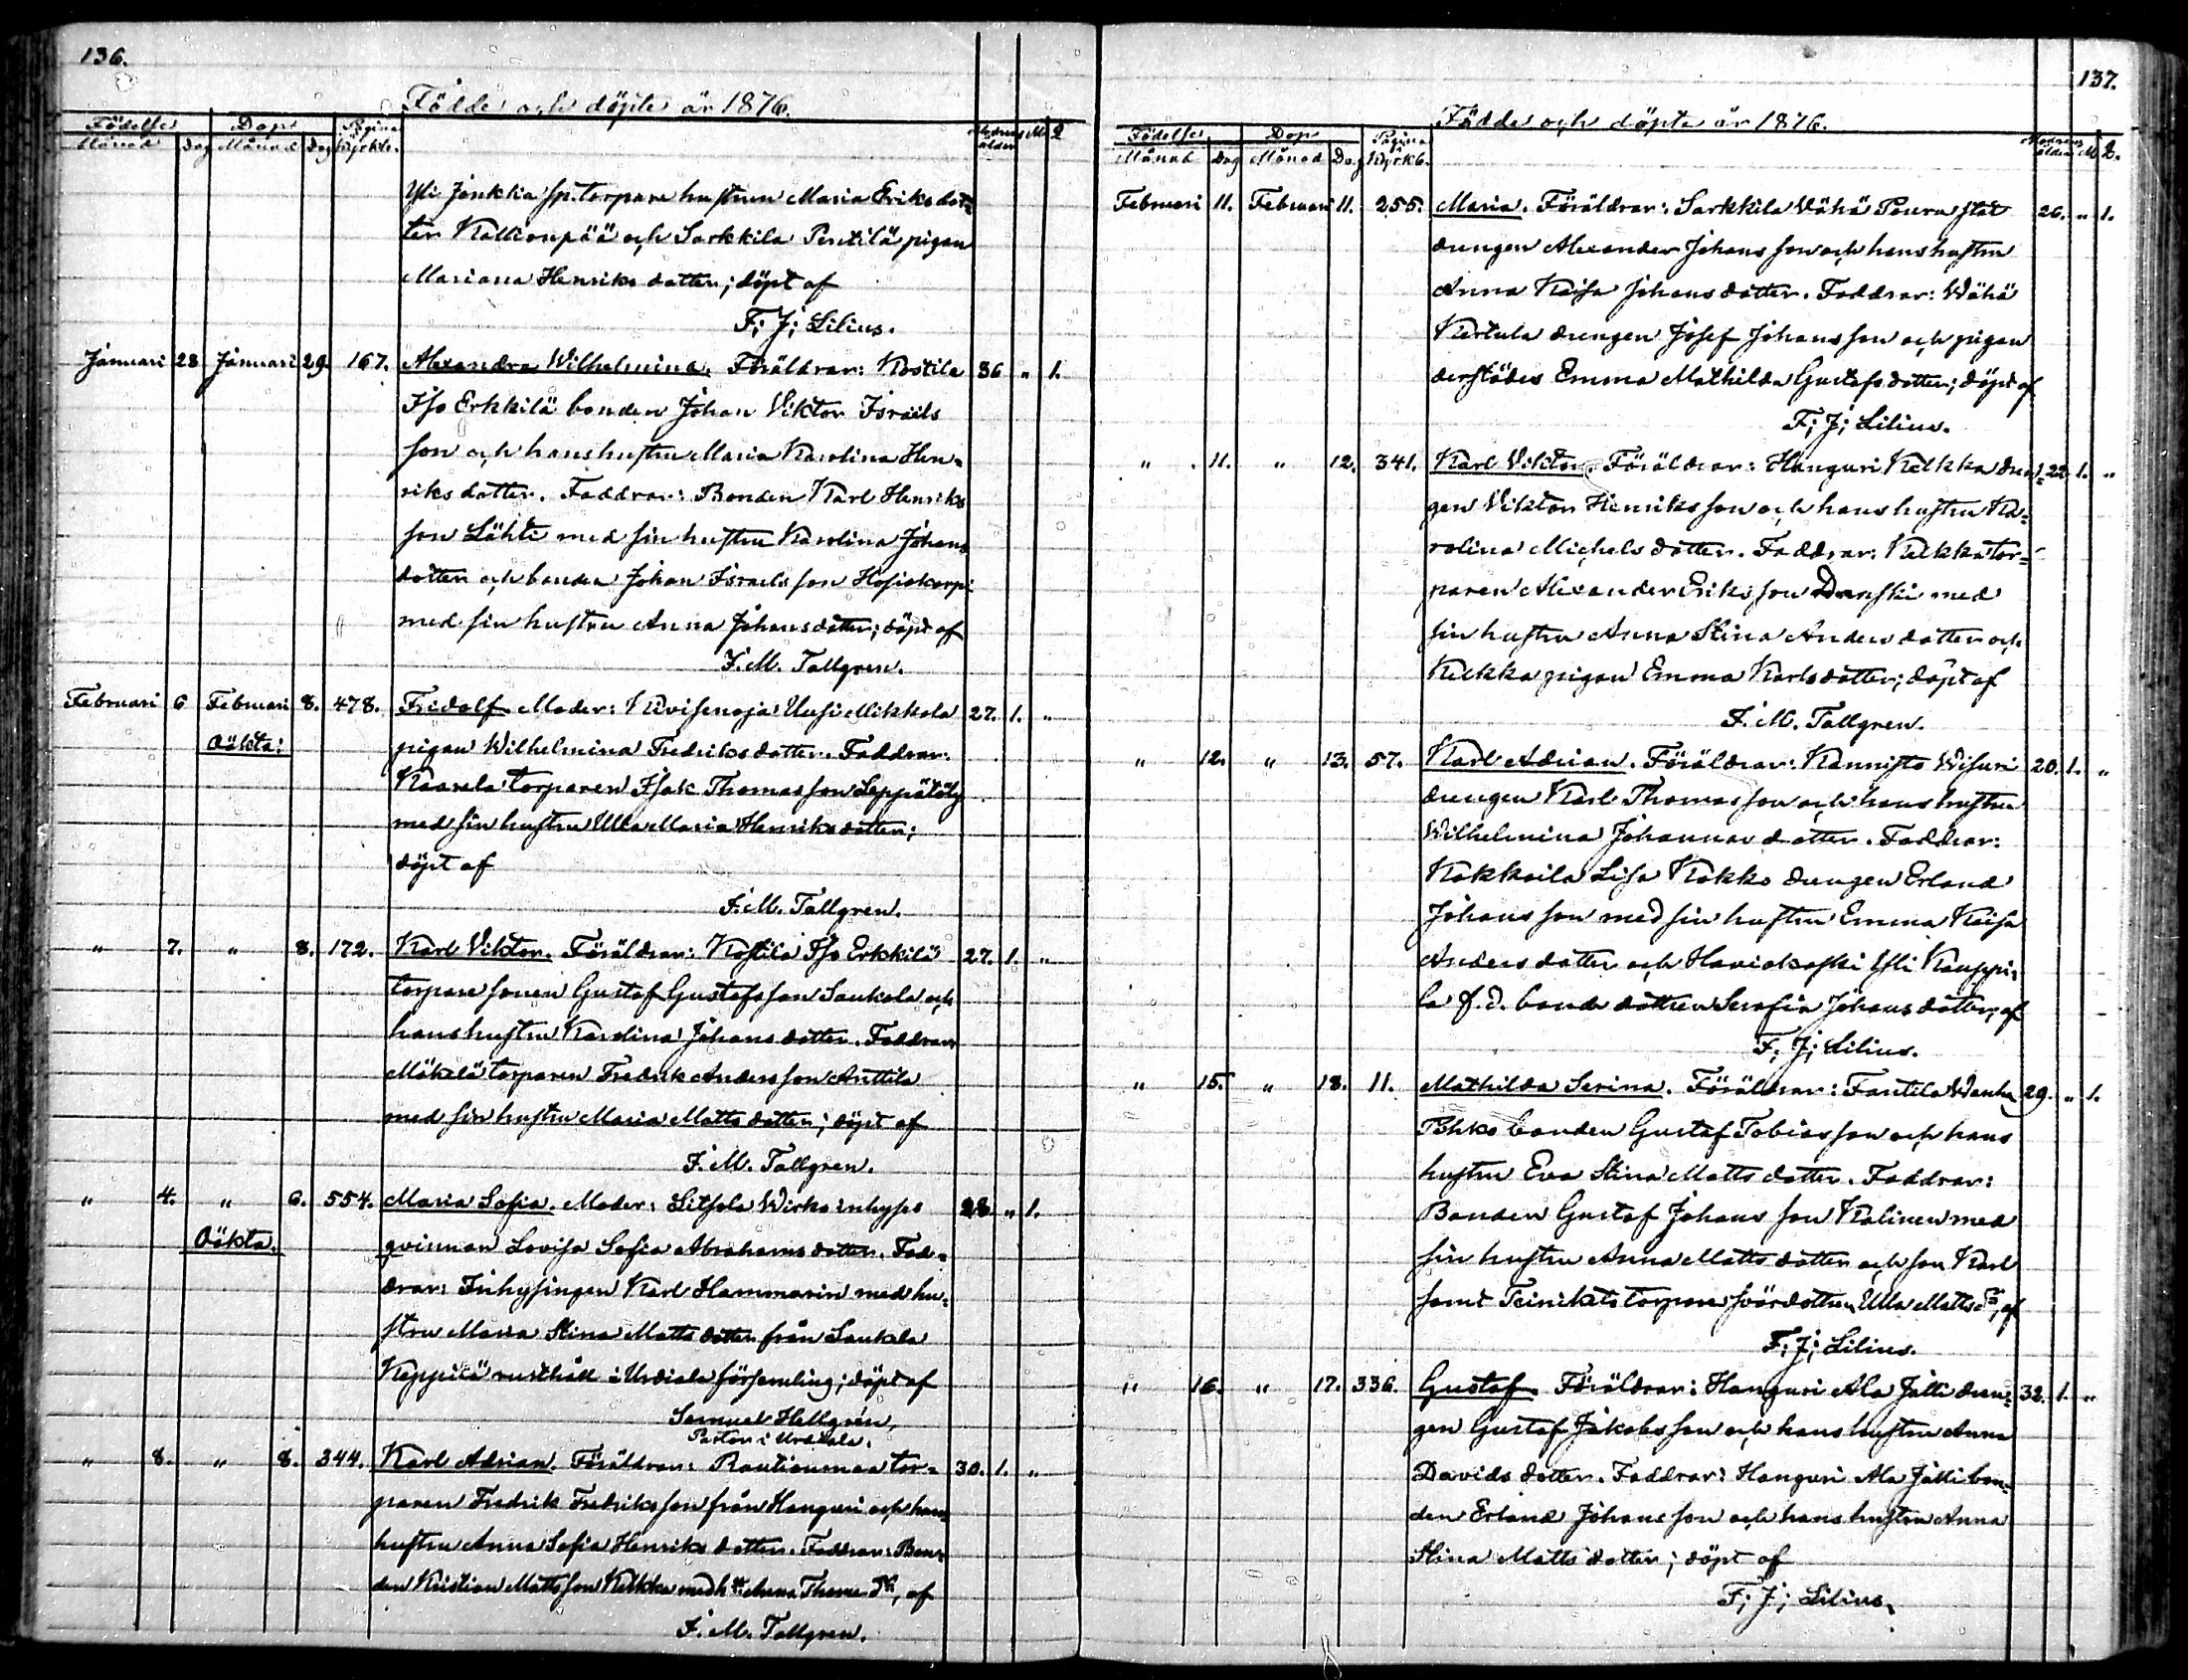 136.
Födde och döpte år 1876.
Födelse Dop Pagina i kyrkb. Modrens ålder M. Q.
Månad Dag Månad Dag
Yli Jonkka sp. torpare hustrun Maria Eriks dot=
ter Kallionpää och Sarkkila Penttilä pigan
Mariana Henriks dotter; döpt af
F; J; Lilius.
Januari 28 Januari 29. 167. Alexandra Wilhelmina. Föräldrar: Kostila 36 „ 1.
Iso Erkkilä bonden Johan Viktor Israëls
son och hans hustru Maria Karolina Hen=
riks dotter. Faddrar: Bonden Karl Henriks
son Lähti med sin hustru Karolina Johans
dotter och bonden Johan Israels son Hosiokorpi
med sin hustru Anna Johans dotter; döpt af
F. M. Tallgren.
Februari 6 Februari 8. 478. Fridolf. Moder: Kavisenoja Uusi Mikkola 27. 1. „
Oäkta: pigan Wilhelmina Fredriks dotter. Faddrar:
Kaarela torparen Isak Thomas son Leppälöly
med sin hustru Ulla Maria Henriks dotter;
döpt af
F. M. Tallgren.
„ 7. „ 8. 172. Karl Viktor. Föräldrar: Kostila Iso Erkkilä 27. 1. „
torpare sonen Gustaf Gustafs son Saukola och
hans hustru Karolina Johans dotter. Faddrar:
Mäkelä torparen Fredrik Anders son Anttila
med sin hustru Maria Matts dotter; döpt af
F. M. Tallgren.
„ 4. „ 6. 554. Maria Sofia. Moder: Litsola Wirko inhyses 28. „ 1.
Oäkta. qvinnan Lovisa Sofia Abrahams dotter. Fad=
drar: Inhysingen Karl Hammarin med hu=
stru Maria Stina Matts dotter från Saukola
Keppilä rusthåll i Urdiala församling; döpt af
Samuel Hellgrén,
Pastor i Urdiala.
„ 8. „ 8. 344. Karl Adrian. Föräldrar: Rautionmaa tor= 30. 1. „
paren Fredrik Fredriks son från Hanguri och hans
hustru Anna Sofia Henriks dotter. Faddrar: Bon=
den Kristian Matts son Kelkka med h:u Anna Thoms d:r, af
F. M. Tallgren.
137.
Födde och döpte år 1876.
Födelse Dop Pagina i kyrkb. Modrens ålder M. Q.
Månad Dag Månad Dag
Februari 11. Februari 11. 255. Maria. Föräldrar: Sarkkila Vähä Pouru stat 26. „ 1.
drengen Alexander Johans son och hans hustru
Anna Kaisa Johans dotter. Faddrar: Wähä
Kertula drengen Josef Johans son och pigan
derstädes Emma Mathilda Gustafs dotter; döpt af
F; J; Lilius.
„ 11. „ 12. 341. Karl Viktor. Föräldrar: Hanguri Kelkka dren= 22. 1. „
gen Viktor Henriks son och hans hustru Ka=
rolina Michels dotter. Faddrar: Kelkka tor=
paren Alexander Eriks son Danski med
sin hustru Anna Stina Anders dotter och
Kelkka pigan Emma Karls dotter; döpt af
F. M. Tallgren.
„ 12. „ 13. 57. Karl Adrian. Föräldrar: Kannisto Wisuri 20. 1. „
drengen Karl Thomas son och hans hustru
Wilhelmina Johannas dotter. Faddrar:
Kokkoila Liso Kokko drengen Erland
Johans son med sin hustru Emma Kaisa
Anders dotter och Haviokoski Yli Kauppi=
la f. d. bonde dottren Serafia Johans dotter; af
F; J; Lilius.
„ 15. „ 18. 11. Mathilda Serina. Föräldrar: Fantila Wanha 29. „ 1.
Pokko bonden Gustaf Tobias son och hans
hustru Eva Stina Matts dotter. Faddrar:
Bonden Gustaf Johans son Kalinen med
sin hustru Anna Matts dotter och son Karl
samt torpare svärdottren Ulla Matts d:r, af
F; J; Lilius.
„ 16. „ 17. 336. Gustaf. Föräldrar: Hanguri Ala Jalli dren= 32. 1. „
gen Gustaf Jakobs son och hans hustru Anna
Davids dotter. Faddrar: Hanguri Ala Jalli bon=
den Erland Johans son och hans hustru Anna
Stina Matts dotter; döpt af
F; J; Lilius.